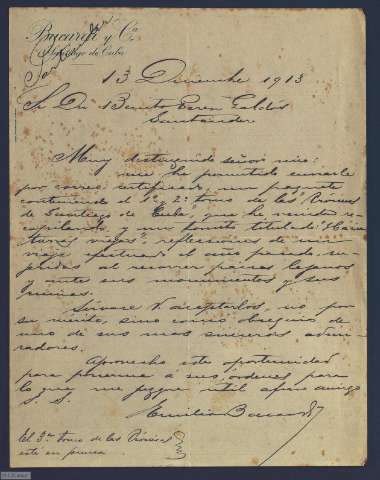 Bacardi y Cª
Santiago de Cuba
13 Diciembre 1913
Sr Dn Benito Perez Galdós
Santander
Muy distinguido señor mio:
me he permitido enviarle
por correo certificado, un paquete
conteniendo el 1º y 2º tomo de las Crónicas
de Santiago de Cuba, que he venido re-
copilando, y un tomito titulado "Hacia
tierras viejas" reflexiones de un
viaje efectuado el año pasado,
al recorrer paises lejanos
y ante sus monumentos y sus
ruinas.
Sirvase V aceptarlos, no por
su merito, sino como obsequio de
uno de sus mas sinceros admi-
radores.
Aprovecho esta oportunidad
para ponerme a sus ordenes para
lo que me juzgue útil afmo amigo
S. S.
Emilio Bacardi
El 3er tomo de las Crónicas
está en prensa